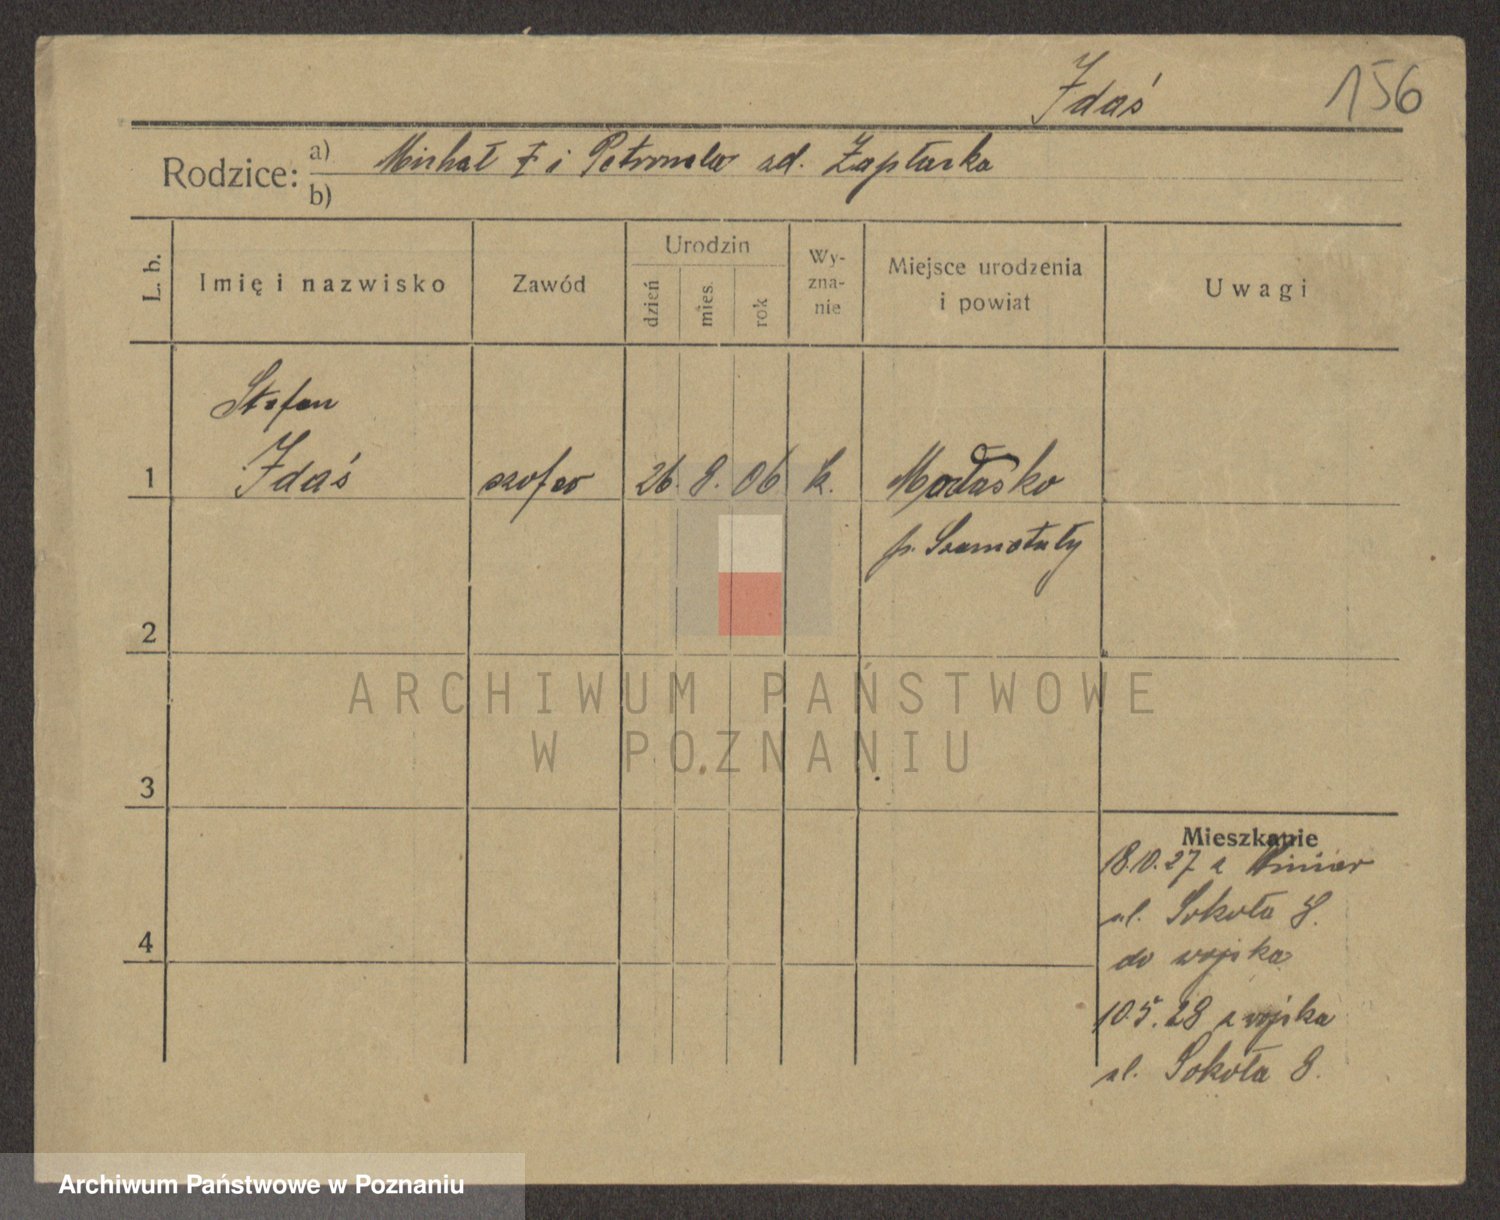 Idaś 156
Rodzice: a) Michał I i Petronela zd. Zaptarka
b)
L. b. Imię i nazwisko Zawód Urodzin dzień mies. rok Wyznanie Miejsce urodzenia i powiat Uwagi
Stefan
1 Idaś szofer 26. 8. 06 k.
p. Szamotuły
2
ARCHIWUM PAŃSTWOWE
W POZNANIU
3
Mieszkanie
18.10.27 z
ul. Sokoła 8.
do wojska
4
10.5.28 z wojska
ul. Sokoła 8.
Archiwum Państwowe w Poznaniu